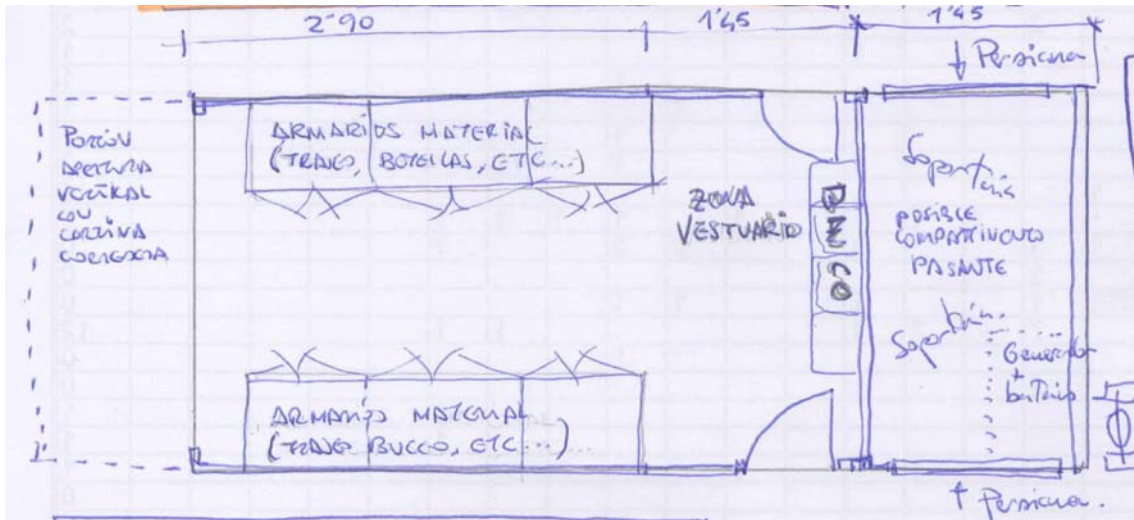 2'90
1'45
1'45
↓ Persiana
PORTÓN
APERTURA
VERTIKAL
CON
CORTINA
CORREDERA
ARMARIOS MATERIAL
(TRAJES, BOTELLAS, ETC...)
ZONA
VESTUARIO
BANCO
POSIBLE
COMPARTIMENTO
PASANTE
Generador
+
batería
ARMARIOS MATERIAL
(TRAJES BUCEO, ETC....)
↑ Persiana.